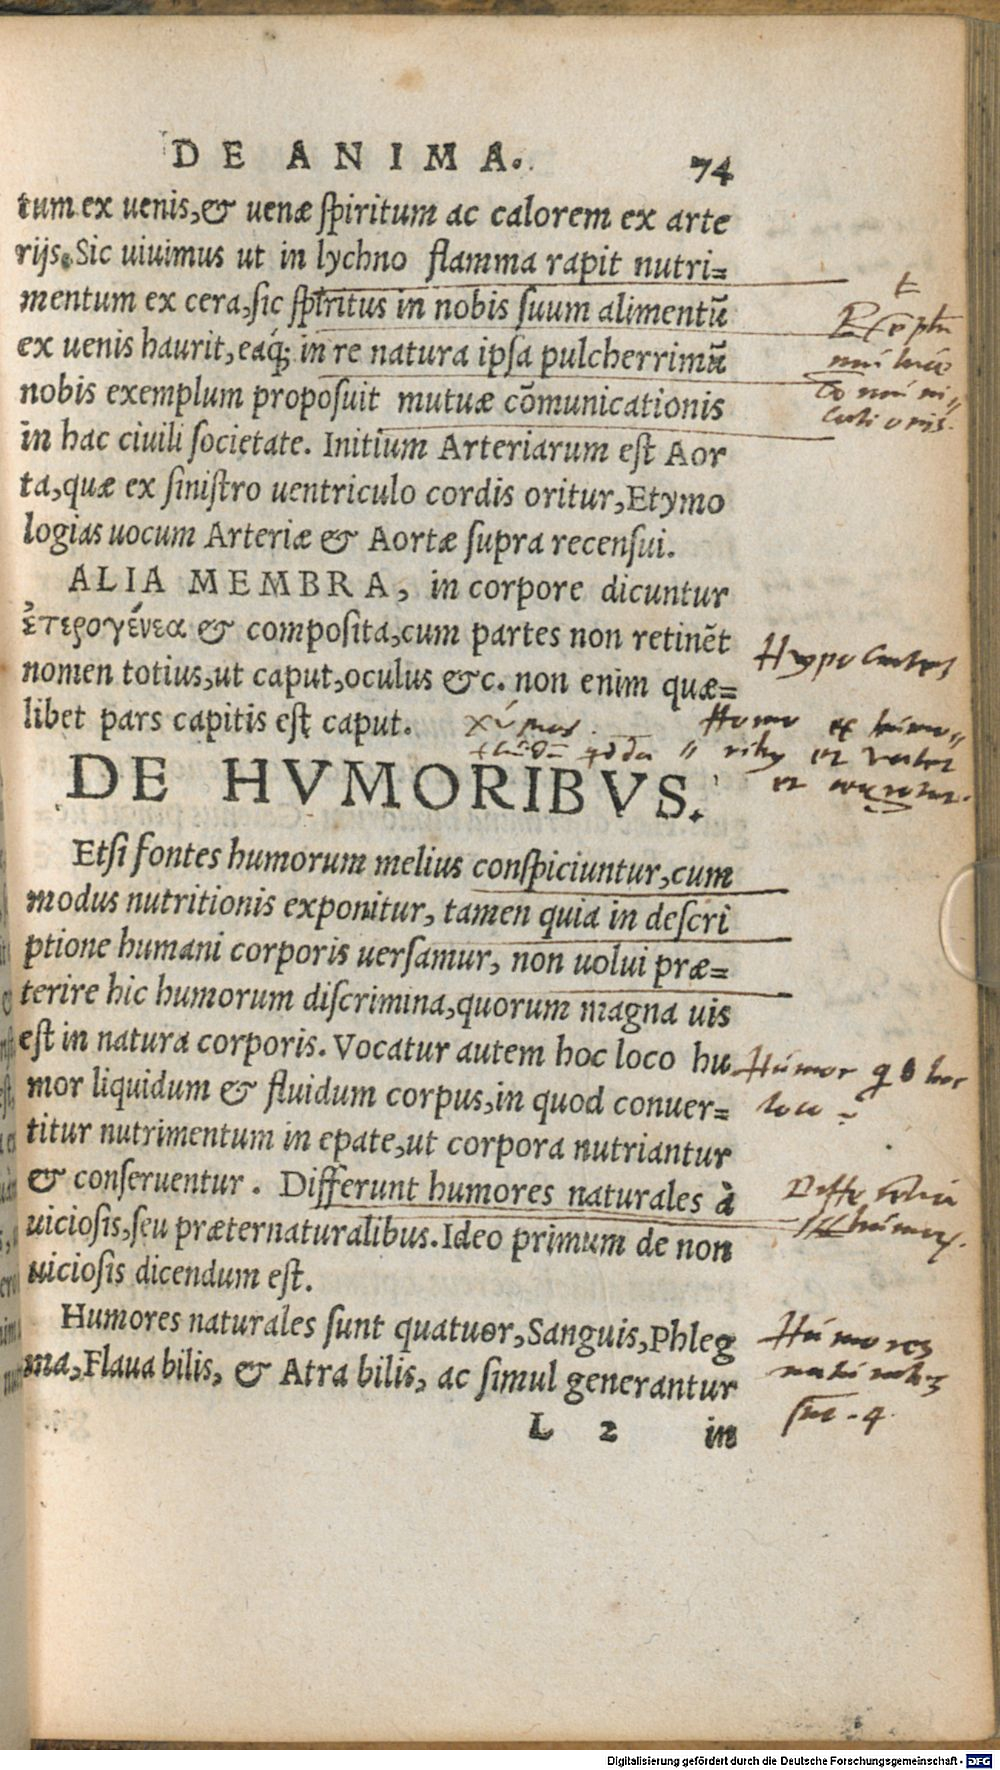 DE ANIMA. 74
tum ex uenis,& uenæ ſpiritum ac calorem ex arte
rijs. Sic uiuimus ut in lychno flamma rapit nutri=
mentum ex cera,ſic ſpiritus in nobis ſuum alimentū
ex uenis haurit,eaq́; in re natura ipſa pulcherrimū
nobis exemplum propoſuit mutuæ cōmunicationis
in hac ciuili ſocietate. Initium Arteriarum eſt Aor
ta,quæ ex ſiniſtro uentriculo cordis oritur,Etymo
logias uocum Arteriæ & Aortæ ſupra recenſui.
ALIA MEMBRA, in corpore dicuntur
ἑτερογένεα & compoſita,cum partes non retinēt
nomen totius,ut caput,oculus &c. non enim quæ=
libet pars capitis eſt caput.
Homo ex humo〃
et
et
DE HVMORIBVS.
Etſi fontes humorum melius conſpiciuntur,cum
modus nutritionis exponitur, tamen quia in deſcri
ptione humani corporis uerſamur, non uolui præ=
terire hic humorum diſcrimina,quorum magna uis
eſt in natura corporis. Vocatur autem hoc loco hu
mor liquidum & fluidum corpus,in quod conuer=
titur nutrimentum in epate,ut corpora nutriantur
& conſeruentur. Differunt humores naturales à
uicioſis,ſeu præternaturalibus. Ideo primum de non
uicioſis dicendum eſt.
Humores naturales ſunt quatuor,Sanguis,Phleg
ma,Flaua bilis, & Atra bilis, ac ſimul generantur
L 2 in
Húmor hoc
loco
Húmores
4
Digitalisierung gefördert durch die Deutsche Forschungsgemeinschaft - DFG